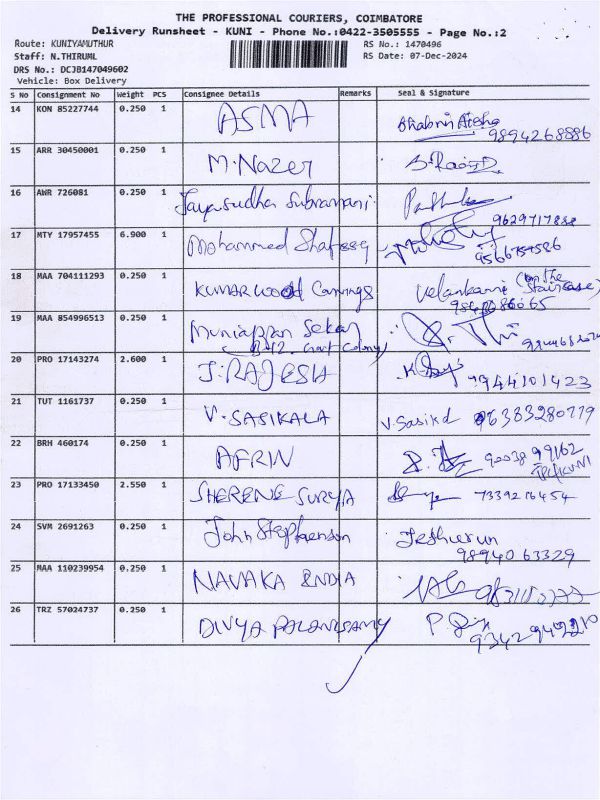 THE PROFESSIONAL COURIERS, COIMBATORE
Delivery Runsheet - KUNI - Phone No.:0422-3505555 - Page No.:2
Route: KUNIYAMUTHUR RS No.: 1470496
Staff: N.THIRUML RS Date: 07-Dec-2024
DRS No.: DCJB147049602
Vehicle: Box Delivery
S No Consignment No Weight PCS Consignee Details Remarks Seal & Signature
14 KON 85227744 0.250 1 ASMA
9894268886
15 ARR 30450001 0.250 1 M.Nazer
16 AWR 726081 0.250 1 Jayasudha Subramani
9629717888
17 MTY 17957455 6.900 1 Mohammed
18 MAA 704111293 0.250 1 KUMAR WOOD Carvings Velankanni (on the
Staircase)
19 MAA 854996513 0.250 1 Muniappan Sekar
20 PRO 17143274 2.600 1 J.RAJESH 7944101423
21 TUT 1161737 0.250 1 V.SASIKALA V.Sasikal 6383280779
22 BRH 460174 0.250 1 AFRIN 90038 99162
23 PRO 17133450 2.550 1 SHERENE SURYA 7339276454
24 SVM 2691263 0.250 1 John Stephenson Jeshurun
98940 63329
25 MAA 110239954 0.250 1 NAVAKA INDIA
26 TRZ 57024737 0.250 1 DIVYA PALANISAMY